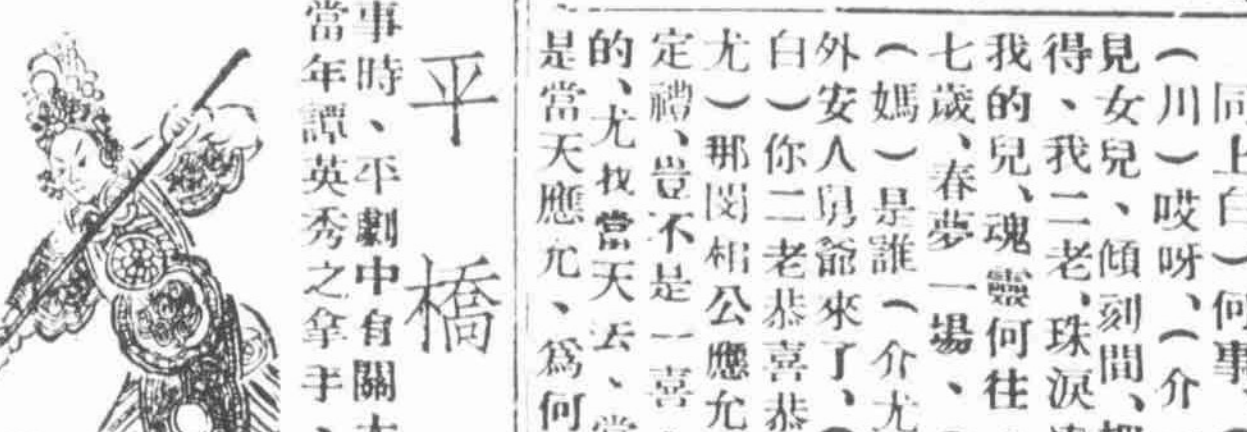 同上白）何事、
（川）哎呀、（介
見女兒、傾刻間、
得、我二老、珠淚
我的兒、魂靈何往
七歲、春夢一場、
（媽）是誰（介尤
外安人舅爺來了、
白）你二老恭喜恭
尤）那閔相公應允
定禮、豈不是一喜
的、尤找當天去、當
是當天應允、為何
平橋
事時、平劇中有關
當年譚英秀之拿手、